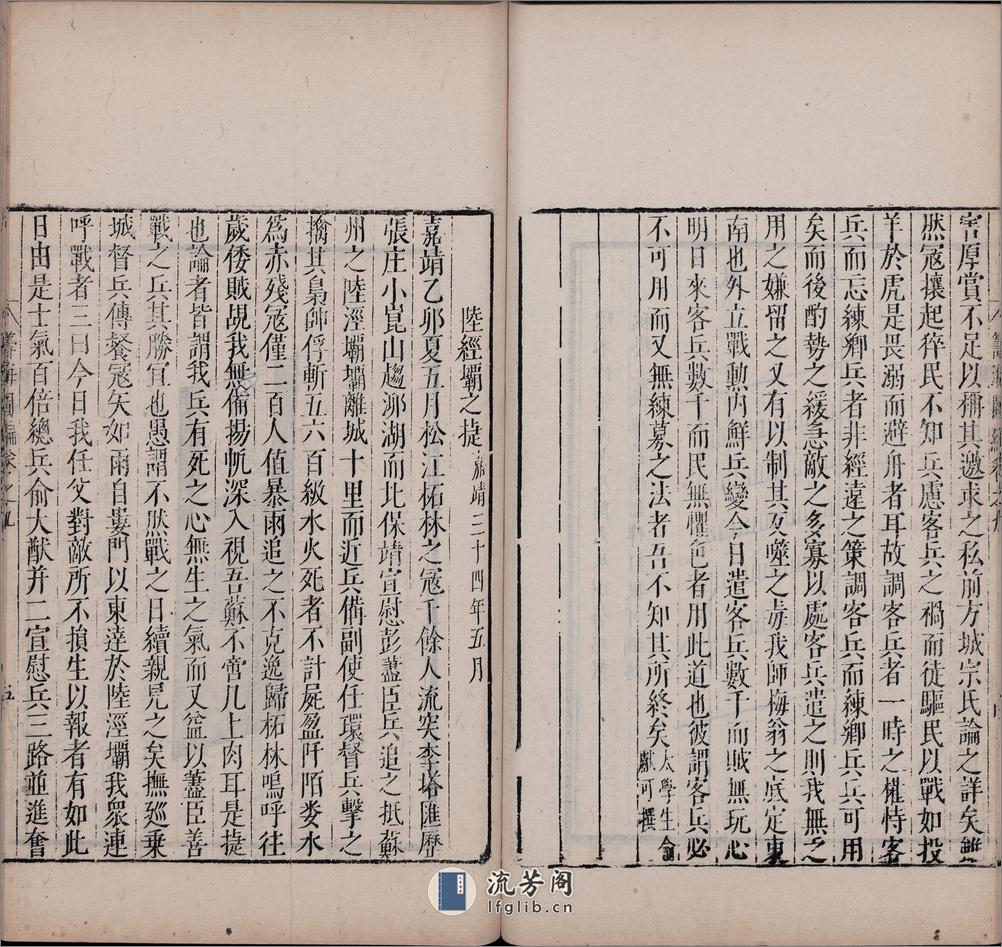 害厚賞不足以稱其邀求之私前方城宗氏論之詳矣雖
然寇攘起猝民不知兵慮客兵之禍而徒驅民以戰如投
羊於虎是畏溺而避舟者耳故調客兵者一時之權恃客
兵而忘練鄉兵者非經遠之策調客兵而練鄉兵兵可用
矣而後酌勢之緩急敵之多寡以處客兵遣之則我無乏
用之嫌留之又有以制其反噬之毒我師梅翁之底定東
南也外立戰勲內鮮兵變今日遣客兵數千而賊無玩心
明日來客兵數千而民無懼色者用此道也彼謂客兵必
不可用而又無練募之法者吾不知其所終矣太學生俞
獻可撰
陸經壩之捷嘉靖三十四年五月
嘉靖乙卯夏五月松江柘林之寇千餘人流突李塔匯歷
張庄小崑山趨泖湖而北保靖宣慰彭藎臣兵追之抵蘇
州之陸涇壩壩離城十里而近兵備副使任環督兵擊之
擒其梟帥俘斬五六百級水火死者不計屍盈阡陌婁水
為赤殘寇僅二百人值暴雨追之不克逸歸柘林嗚呼往
歲倭賊覘我無備揚帆深入視吾蘇不啻几上肉耳是捷
也論者皆謂我兵有死之心無生之氣而又益以藎臣善
戰之兵其勝宜也愚謂不然戰之日續親見之矣撫巡乘
城督兵傳餐寇矢如雨自婁門以東達於陸涇壩我衆連
呼戰者三曰今日我任父對敵所不損生以報者有如此
日由是士氣百倍總兵俞大猷并二宣慰兵三路並進奮
籌海圖編卷之九
五
流芳阁
lfglib.cn